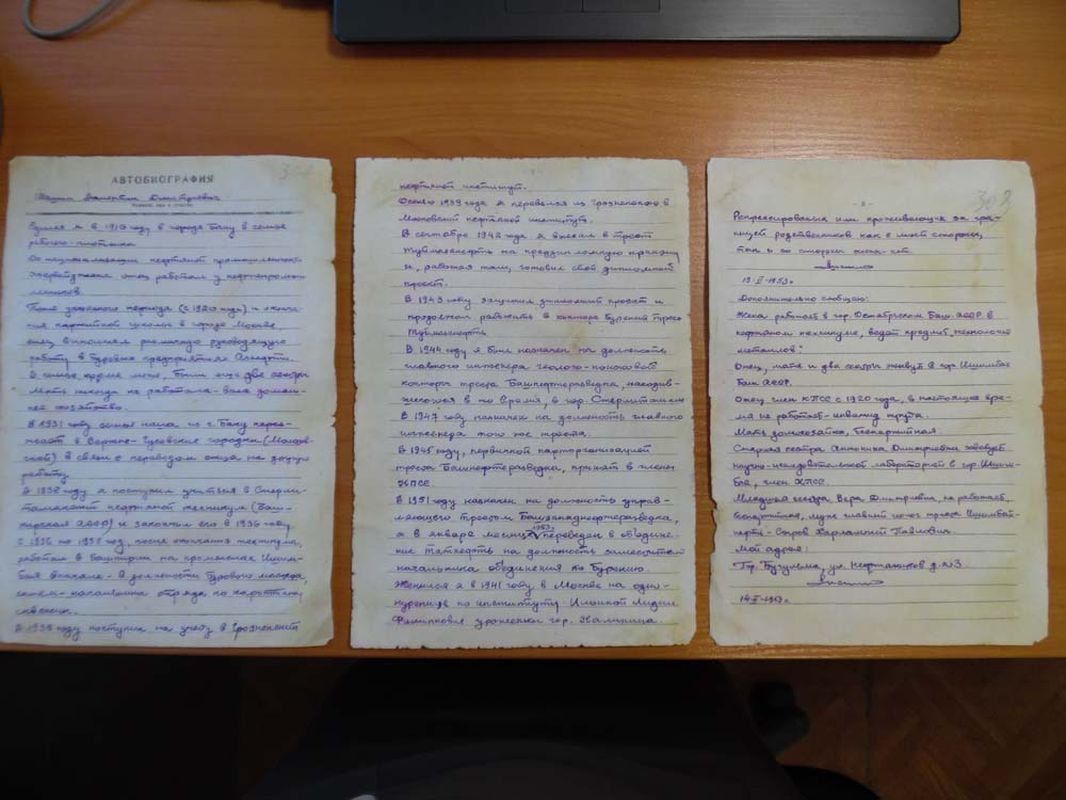 АВТОБИОГРАФИЯ
Валентин Дмитриевич
я в 19 году в городе Баку в семье
рабочего
До национализации нефтяной промышленности
отец работал у нефтепромыш
ленников.
После указанного периода (с 1920 года) и оконча
ния школы в городе Москве
отец выполнял руководящую
работу в буровых предприятиях Азнефти.
В семье кроме меня, были еще две сестры
Мать никогда не работала - вела домаш
нее хозяйство.
В 1931 году семья наша из г. Баку переез
жает в Верхне- городки (Молотов
ской) в связи с переводом отца на другую
работу.
В 1932 году я поступил учиться в Стерли
тамакский нефтяной техникум (Баш
кирская АССР) и закончил его в 1936 году.
С 1936 по 1938 год, после окончания техникума,
работал в Башкирии на промыслах Ишим
бая вначале - в должности бурового мастера,
затем - начальника отряда по
скважин.
В 1938 году поступил на учебу в Грозненский
нефтяной институт.
Осенью 1939 года я перевелся из Грозненского в
Московский нефтяной институт.
В сентябре 1942 года я выехал в трест
Туймазанефть на преддипломную практику
и, работая там, готовил свой дипломный
проект.
В 1943 году защитил дипломный проект и
продолжал работать в конторе бурения треста
Туймазанефть.
В 1944 году я был назначен на должность
главного инженера геолого-поисковой
конторы треста Башнефтеразведка, находив-
шегося в то время, в гор. Стерлитамаке
В 1947 году назначен на должность главного
инженера того же треста.
В 1945 году, первичной парторганизацией
треста Башнефтеразведка, принят в члены
КПСС.
В 1951 году назначен на должность управ-
ляющего трестом Башзападнефтеразведка,
1953
а в январе месяце переведен в объедине-
ние Татнефть на должность заместителя
начальника объединения по бурению.
Женился я в 1941 году в Москве на одно-
курснице по институту Лидии
Филипповне уроженки гор. Калинина.
- 3 -
308
Репрессированных или проживающих за гра-
ницей родственников как с моей стороны,
так и со стороны жены нет.
1953 г.
Дополнительно сообщаю:
Жена работает в гор. Октябрьском Баш. АССР в
нефтяном техникуме, ведет предмет "технология
металлов".
Отец, мать и две сестры живут в гор. Ишимбае
Баш АССР.
Отец член КПСС с 1920 года, в настоящее вре-
ма не работает - инвалид труда.
Мать домохозяйка, беспартийная.
Старшая сестра Антонина Дмитриевна заведует
научно-исследовательской лабораторией в гор. Ишим-
бай, член КПСС.
Младшая сестра, Вера Дмитриевна, не работает,
беспартийная, муж главный геолог треста Ишимбай-
нефть - Харлампий Павлович.
Мой адрес:
Гор. Бугульма, ул. Нефтяников д. №3
1953 г.